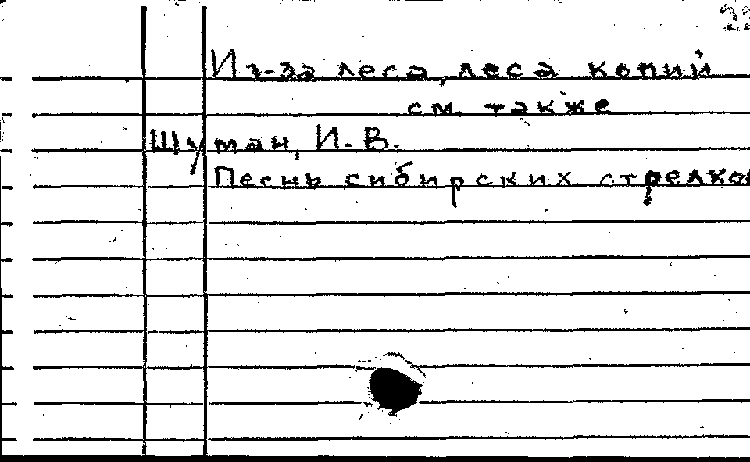 Из-за леса, леса копий
см. также
Шуман, И. В.
Песнь сибирских стрелков